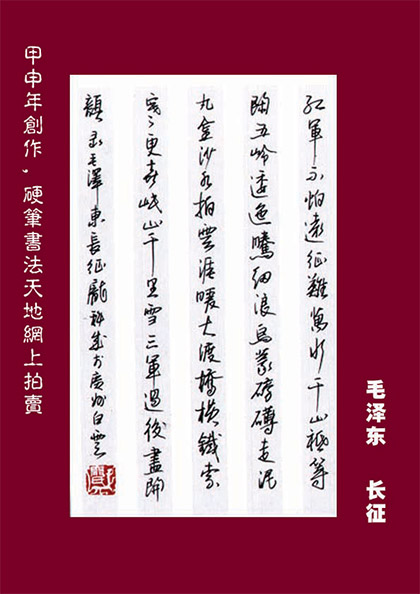 毛泽东 长征
红軍不怕遠征難萬水千山祗等
閑五岭逶迤騰細浪烏蒙磅礴走泥
丸金沙水拍雲涯暖大渡橋横鐵索
寒更喜岷山千里雪三軍過後盡開
顔 录毛澤東長征龐 於廣州白雲
甲申年創作，硬筆書法天地網上拍賣